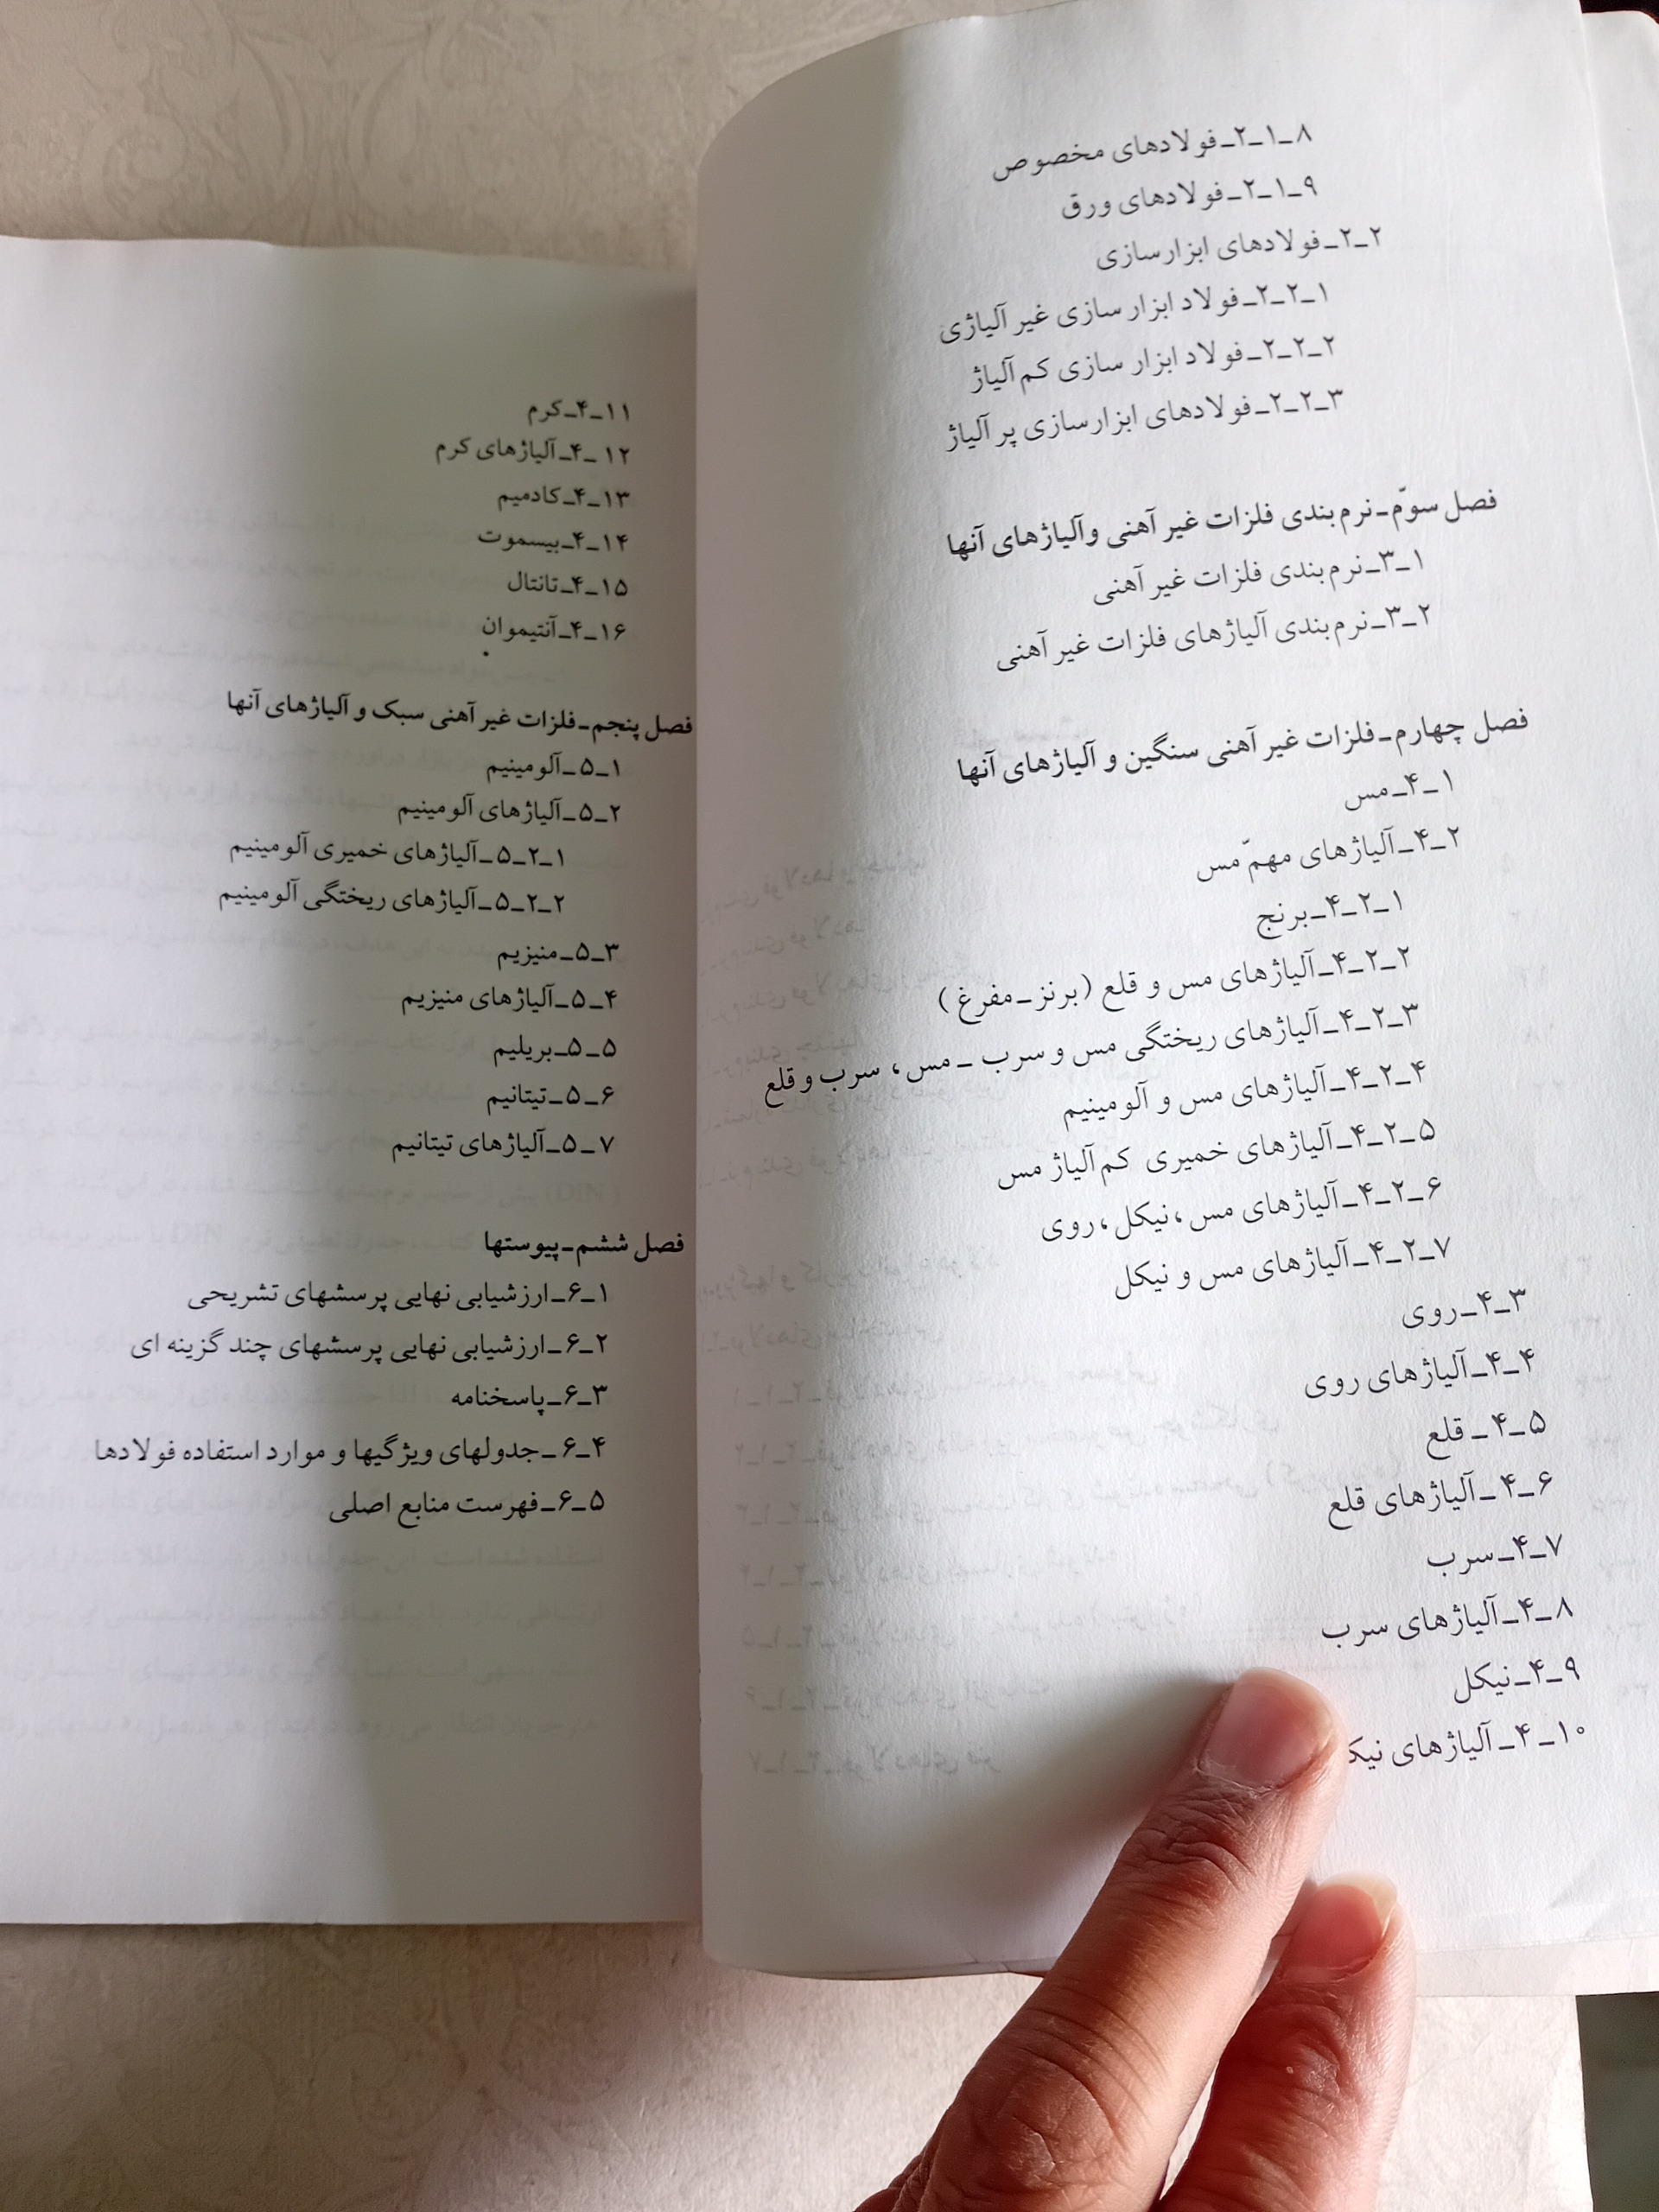 ۸_۱_۲_فولادهای مخصوص
۹_۱_۲_فولادهای ورق
۲_۲_فولادهای ابزارسازی
۱_۲_۲_فولاد ابزار سازی غیر آلیاژی
۲_۲_۲_فولاد ابزار سازی کم آلیاژ
۳_۲_۲_فولادهای ابزارسازی پر آلیاژ
فصل سوّم_نرم بندی فلزات غیر آهنی وآلیاژهای آنها
۱_۳_نرم بندی فلزات غیر آهنی
۲_۳_نرم بندی آلیاژهای فلزات غیر آهنی
فصل چهارم_فلزات غیر آهنی سنگین و آلیاژهای آنها
۱_۴_مس
۲_۴_آلیاژهای مهمّ مس
۱_۲_۴_برنج
۲_۲_۴_آلیاژهای مس و قلع (برنز_مفرغ)
۳_۲_۴_آلیاژهای ریختگی مس و سرب _ مس، سرب و قلع
۴_۲_۴_آلیاژهای مس و آلومینیم
۵_۲_۴_آلیاژهای خمیری کم آلیاژ مس
۶_۲_۴_آلیاژهای مس،نیکل،روی
۷_۲_۴_آلیاژهای مس و نیکل
۳_۴_روی
۴_۴_آلیاژهای روی
۵_۴_ قلع
۶_۴_آلیاژهای قلع
۷_۴_سرب
۸_۴_آلیاژهای سرب
۹_۴_نیکل
۱۰_۴_آلیاژهای
۱۱_۴_کرم
۱۲_۴_آلیاژهای کرم
۱۳_۴_کادمیم
۱۴_۴_بیسموت
۱۵_۴_تانتال
۱۶_۴_آنتیموان
فصل پنجم_فلزات غیر آهنی سبک و آلیاژهای آنها
۱_۵_آلومینیم
۲_۵_آلیاژهای آلومینیم
۱_۲_۵_آلیاژهای خمیری آلومینیم
۲_۲_۵_آلیاژهای ریختگی آلومینیم
۳_۵_منیزیم
۴_۵_آلیاژهای منیزیم
۵_۵_بریلیم
۶_۵_تیتانیم
۷_۵_آلیاژهای تیتانیم
فصل ششم_پیوستها
۱_۶_ارزشیابی نهایی پرسشهای تشریحی
۲_۶_ارزشیابی نهایی پرسشهای چند گزینه ای
۳_۶_پاسخنامه
۴_۶_جدولهای ویژگیها و موارد استفاده فولادها
۵_۶_فهرست منابع اصلی